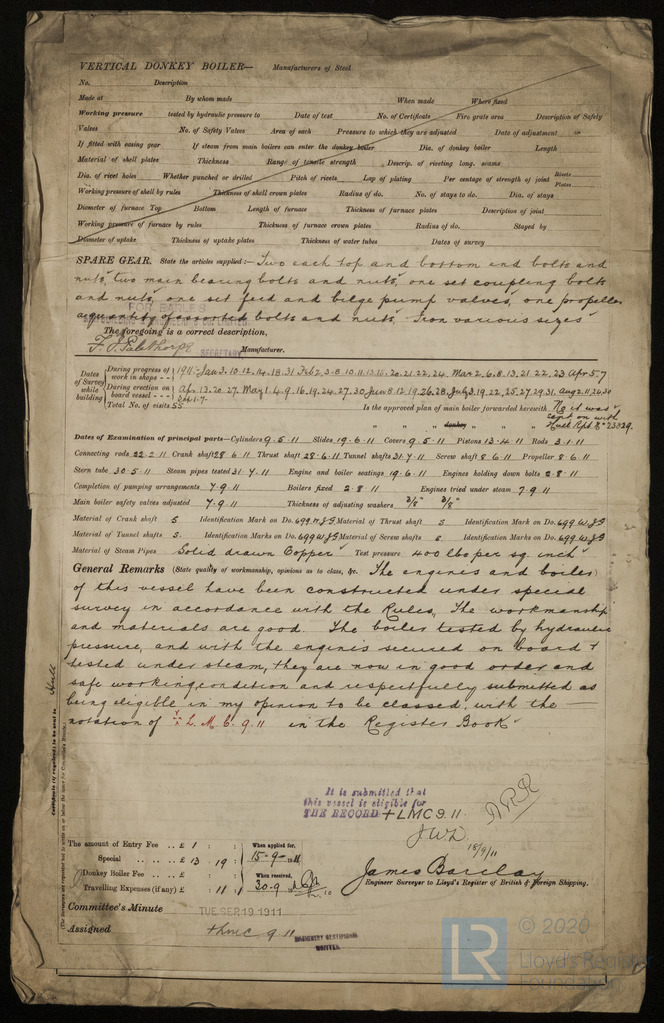 VERTICAL DONKEY BOILER— Manufacturers of Steel
No. Description
Made at By whom made When made Where fixed
Working pressure tested by hydraulic pressure to Date of test No. of Certificate Fire grate area Description of Safety
Valves No. of Safety Valves Area of each Pressure to which they are adjusted Date of adjustment
If fitted with easing gear If steam from main boilers can enter the donkey boiler Dia. of donkey boiler Length
Material of shell plates Thickness Range of tensile strength Descrip. of riveting long. seams
Dia. of rivet holes Whether punched or drilled Pitch of rivets Lap of plating Per centage of strength of joint Rivets Plates
Working pressure of shell by rules Thickness of shell crown plates Radius of do. No. of stays to do. Dia. of stays
Diameter of furnace Top Bottom Length of furnace Thickness of furnace plates Description of joint
Working pressure of furnace by rules Thickness of furnace crown plates Radius of do. Stayed by
Diameter of uptake Thickness of uptake plates Thickness of water tubes Dates of survey
SPARE GEAR. State the articles supplied:— Two each top and bottom end bolts and
nuts, two main bearing bolts and nuts, one set coupling bolts
and nuts, one set feed and bilge pump valves, one propeller
a quantity of assorted bolts and nuts Iron various sizes
FOR EARLE'S
The foregoing is a correct description,
F. J. Palethorpe SECRETARY Manufacturer.
Dates of Survey while building
During progress of work in shops - - 1911:- Jan 3.10.12.14.18.31 Feb 2.3.8.10.11.13.16.20.21.22.24 Mar 2.6.8.13.21.22.23 Apr 5.7
During erection on board vessel - - - Apr 13.20.27. May 1.4.9.16.19.24.27.30 Jun 8.12.19.26.28. July 3.19.22.25.27.29.31. Aug 2.11.26.30
Sep 1.7.
Total No. of visits 55 Is the approved plan of main boiler forwarded herewith No it was
sent on with
" " " donkey " " " Hull Rpt. No 23329.
Dates of Examination of principal parts—Cylinders 9.5.11 Slides 19.6.11 Covers 9.5.11 Pistons 13.4.11 Rods 3.1.11
Connecting rods 22.2.11 Crank shaft 28.6.11 Thrust shaft 28.6.11 Tunnel shafts 31.7.11 Screw shaft 8.6.11 Propeller 8.6.11
Stern tube 30.5.11 Steam pipes tested 31.7.11 Engine and boiler seatings 19.6.11 Engines holding down bolts 2.8.11
Completion of pumping arrangements 7.9.11 Boilers fixed 2.8.11 Engines tried under steam 7.9.11
Main boiler safety valves adjusted 7.9.11 Thickness of adjusting washers 3/8" 3/8"
Material of Crank shaft S Identification Mark on Do. 699 W.J.G Material of Thrust shaft S Identification Mark on Do. 699 W.J.G
Material of Tunnel shafts S Identification Marks on Do. 699 W.J.G Material of Screw shafts S Identification Marks on Do. 699 W.J.G
Material of Steam Pipes Solid drawn Copper Test pressure 400 lbs per sq. inch
General Remarks (State quality of workmanship, opinions as to class, &c. The engines and boiler
of this vessel have been constructed under special
survey in accordance with the Rules, The workmanship
and materials are good. The boiler tested by hydraulic
pressure, and with the engines secured on board &
tested under steam, they are now in good order and
safe working condition and respectfully submitted as
being eligible in my opinion to be classed, with the —
notation of + L.M.C. 9.11 in the Register Book
Certificate (if required) to be sent to Hull
(The Surveyors are requested not to write on or below the space for Committee's Minute.)
It is submitted that
this vessel is eligible for
THE RECORD + LMC 9.11
J.W.D.
18/9/11
The amount of Entry Fee .. £ 1 : :
Special .. .. .. £ 13 : 19 :
Donkey Boiler Fee .. .. £ : :
Travelling Expenses (if any) £ : 11 :
When applied for,
15-9-11
When received,
30.9
James Barclay
Engineer Surveyor to Lloyd's Register of British & Foreign Shipping.
Committee's Minute TUE SEP 19 1911
Assigned + LMC 9.11
MACHINERY CERTIFICATE
WRITTEN
LR © 2020
Lloyd's Register
Foundation